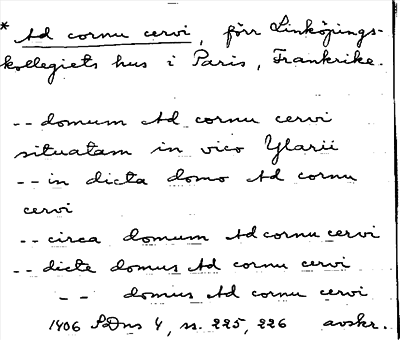 * Ad cornu cervi, förr Linköpings-
kollegiets hus i Paris, Frankrike.
-- domum Ad cornu cervi
situatam in vico Ylarii
-- in dicta domo Ad cornu
cervi
-- circa domum Ad cornu cervi
-- dicte domus Ad cornu cervi
-- domus Ad cornu cervi
1406 SDns 1, ss. 225, 226 avskr.